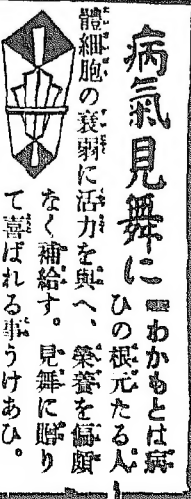 病氣見舞に
〓わかもとは病
ひの根元たる人
體細胞の衰弱に活力を與へ、榮養を偏頗
なく補給す。見舞に贈り
て喜ばれる事うけあひ。